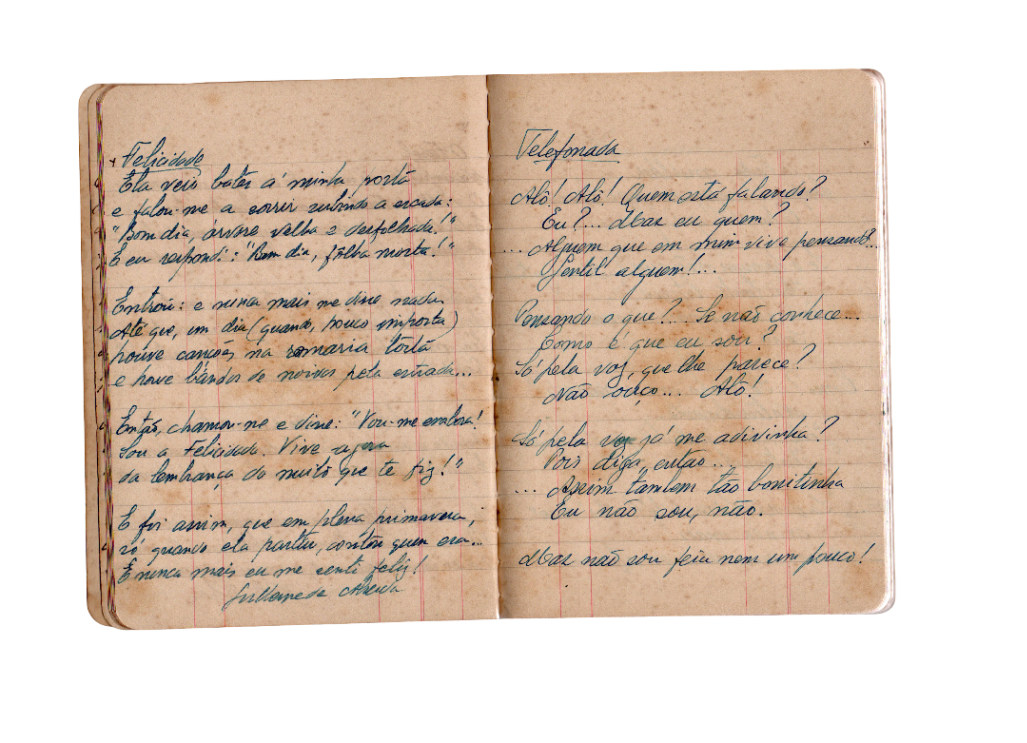 Felicidade
Ela veio bater á minha porta
e falou-me a sorrir subindo a escada:
"Bom dia, árvore velha e desfolhada!"
E eu respondi: "Bom dia, fôlha morta!"
Entrou: e nunca mais me disse nada.
Até que, um dia (quando, pouco importa)
houve canções na romaria torta
e houve bandos de noivos pela estrada...
Então, chamou-me e disse: "Vou-me embora!
Sou a Felicidade. Vive agora
da lembrança do muito que te fiz!"
E foi assim, que em plena primavera,
só quando ela partiu, contou quem era...
E nunca mais eu me senti feliz!
Guilherme de Almeida
Telefonada
Alô! Alô! Quem está falando?
Eu?... Mas eu quem?
... Alguem que em mim vive pensando?...
Gentil alguem!...
Pensando o que?!... Se não conhece...
Como é que eu sou?
Só pela voz, que lhe parece?
Não ouço... Alô!
Só pela voz já me adivinha?
Pois diga, então...
... Assim tambem tão bonitinha
Eu não sou, não.
Mas não sou feia nem um pouco!